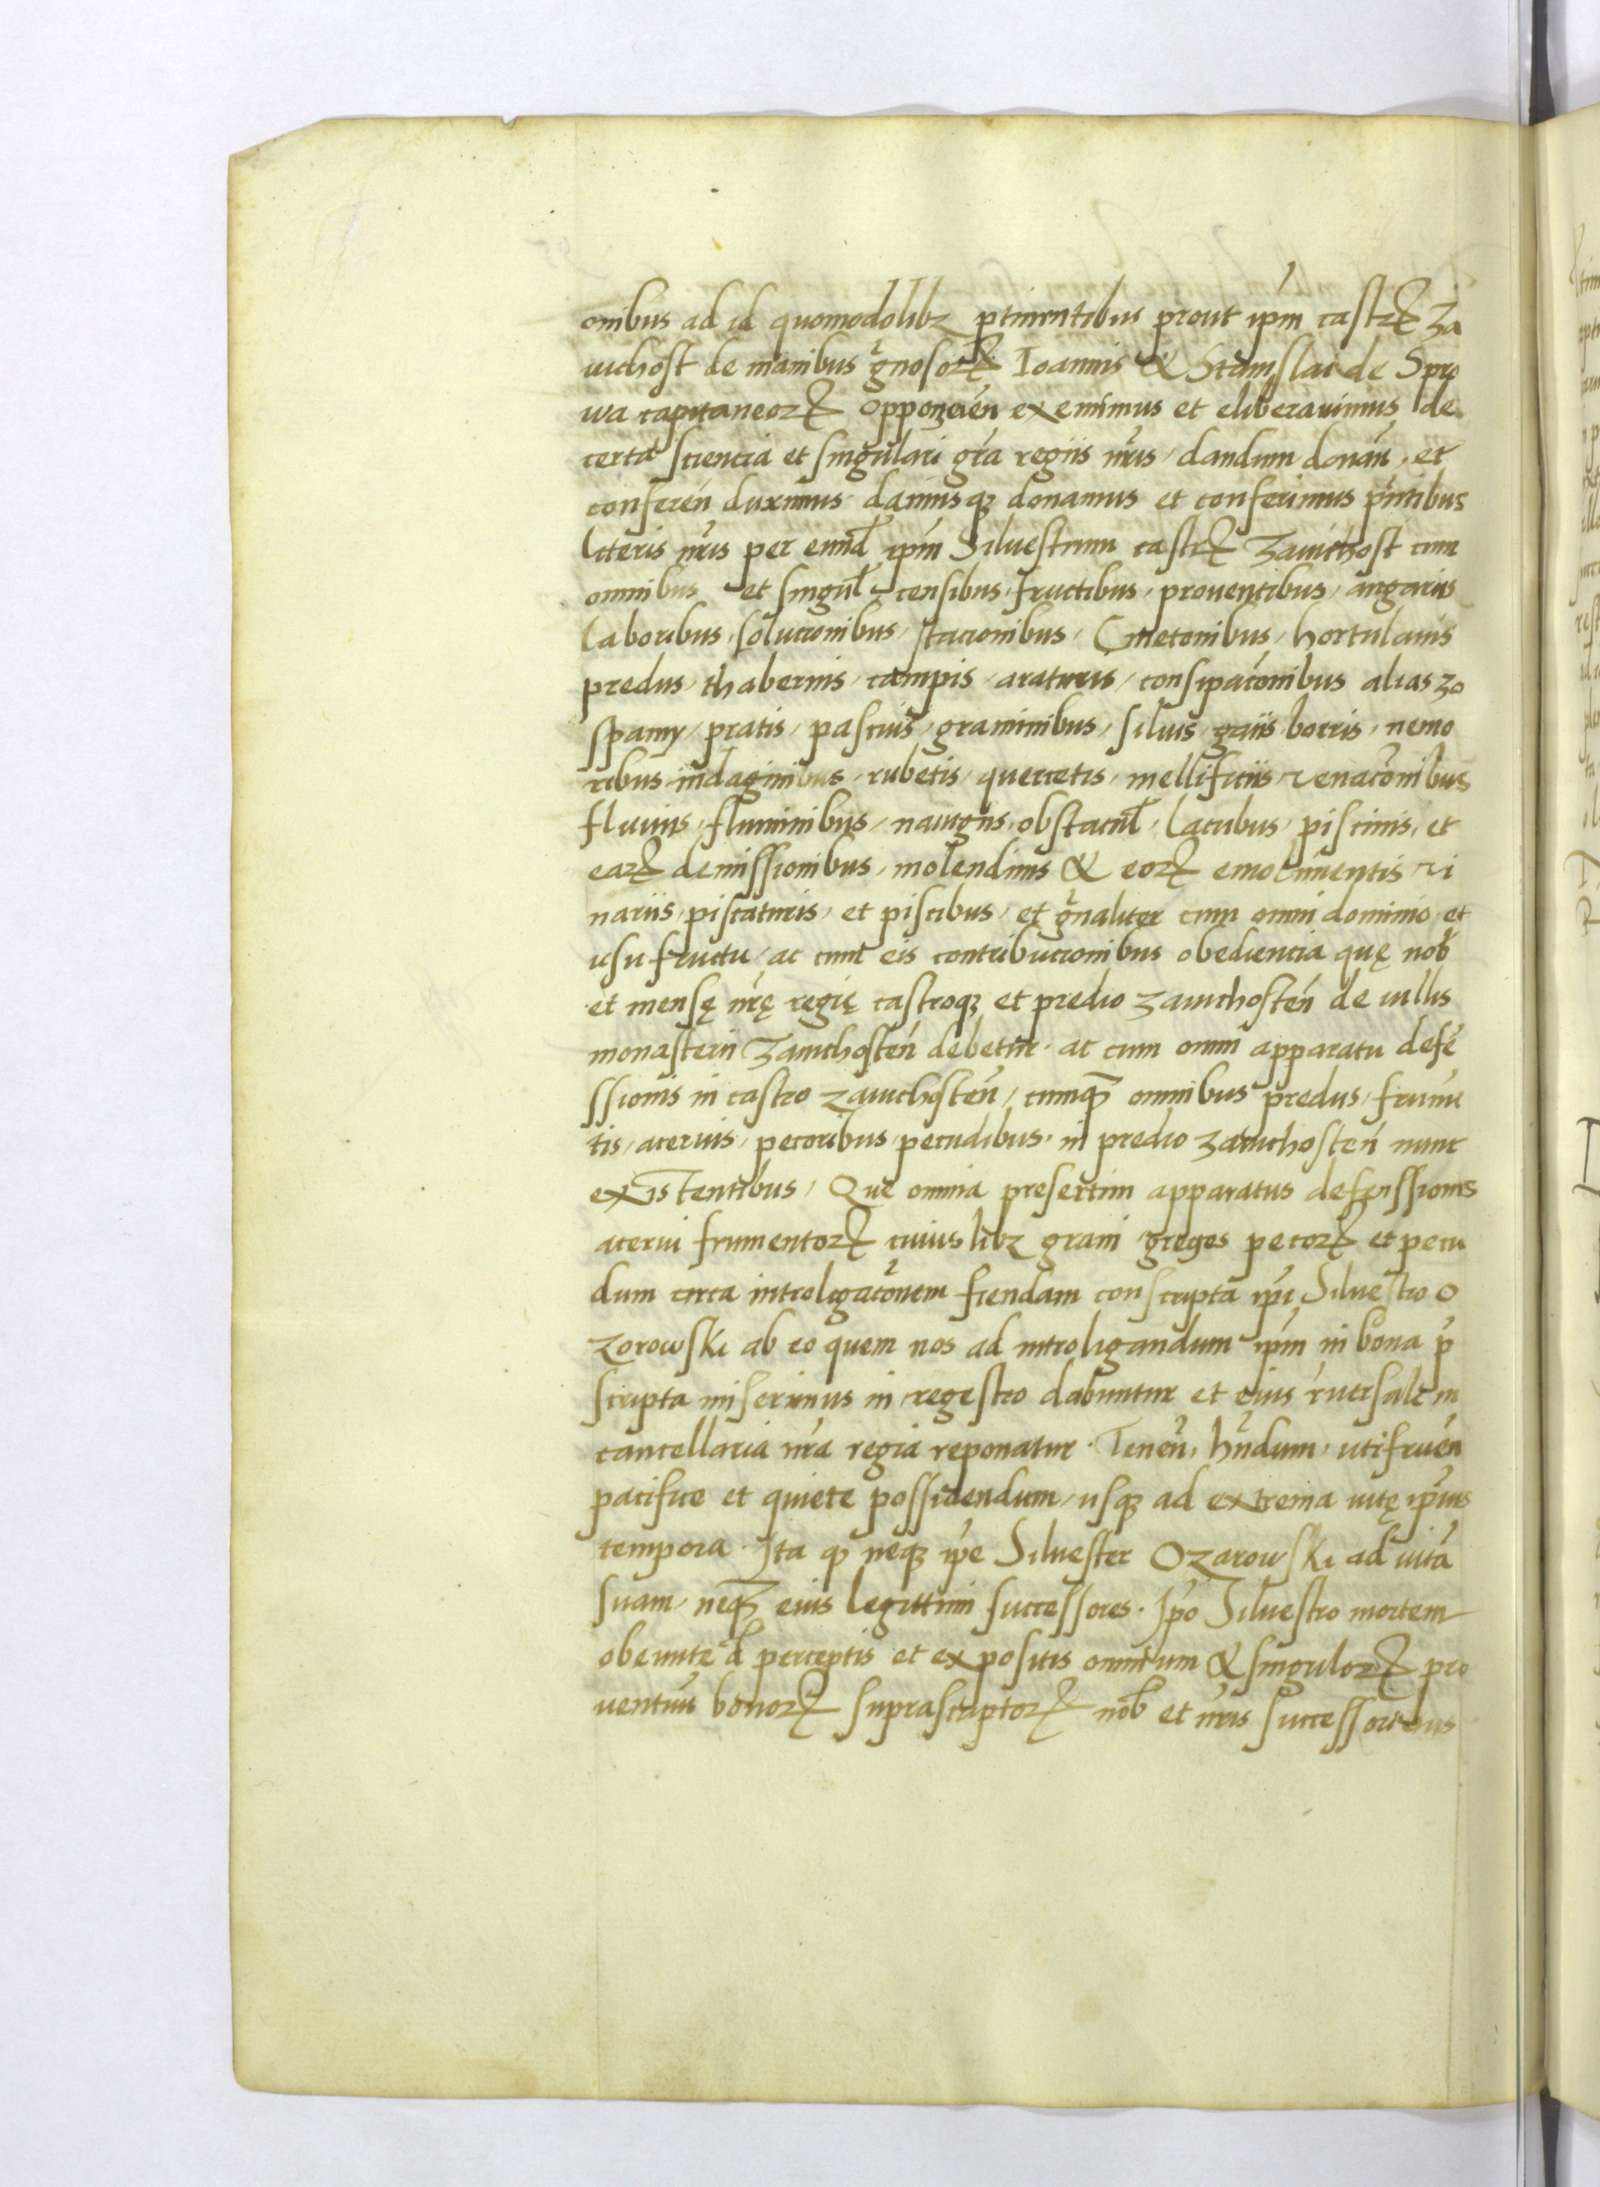 onibus ad id quomodolibz ptinentibus prout ipm castrꝝ Za
uichost de manibus gnosorꝝ Ioannis & Stanislai de Spro
wa capitaneorꝝ Oppoczien exemimus et eliberauimus de
certa scientia et singulari gra regiis nris / dandum donan, et
conferen duximus damusqꝫ donamus et conferimus pntibus
literis nris per eund ipm Siluestrum castrꝝ Zauichost cum
omnibus et singul censibus, fructibus, prouentibus, angariis
Laboribus, Solucionibus, stacionibus, Cmetonibus, hortulanis
predus, thabernis, campis, araturis, consipaconibus alias zo
spamy, pratis, pascuis, graminibus, siluis, gaiis borris, nemo
ribus indaginibus, rubetis, quercetis, mellificiis venaconibus
fluuiis, fluminibus, nauigiis, obstacul, Lacubus, piscinis, et
earꝝ demissionibus, molendinis & eorꝝ emolumentis vi
nariis, piscaturis, et piscibus, et gnaliter cum omni dominio et
usufructu, ac cum eis contribucionibus obediencia quę nob
et mensę nrę regię castroqꝫ et predio zauichosten de villis
monasterii Zauichosten debetur. ac cum omni apparatu defe
ssionis in castro zauichosten, cumqꝫ omnibus predus, frumē
tis, aceruis, pecoribus, pecudibus, in predio zauichosten nunc
existentibus, Que omnia presertim apparatus defenssionis
acerui frumentorꝝ cuiuslibz grani greges pecorꝝ et pecu
dum circa introligaconem fiendam conscripta ipi Siluestro O
zorowski ab eo quem nos ad introligandum ipm in bona p
scripta miserimus in regestro dabuntur et eius ruersale in
cancellaria nra regia reponatur. Tenen, hndum, utifruen
pacifice et quiete possidendum, usqꝫ ad extrema vitę ipius
tempora. Ita qꝫ neqꝫ ipe Siluester Ozarowski ad vitā
suam, neqꝫ eius legittimi successores. Ipo Siluestro mortem
obeunte d perceptis et expositis omnium & singulorꝝ pro
uentuū bonorꝝ suprascriptorꝝ nob et nris successoribus